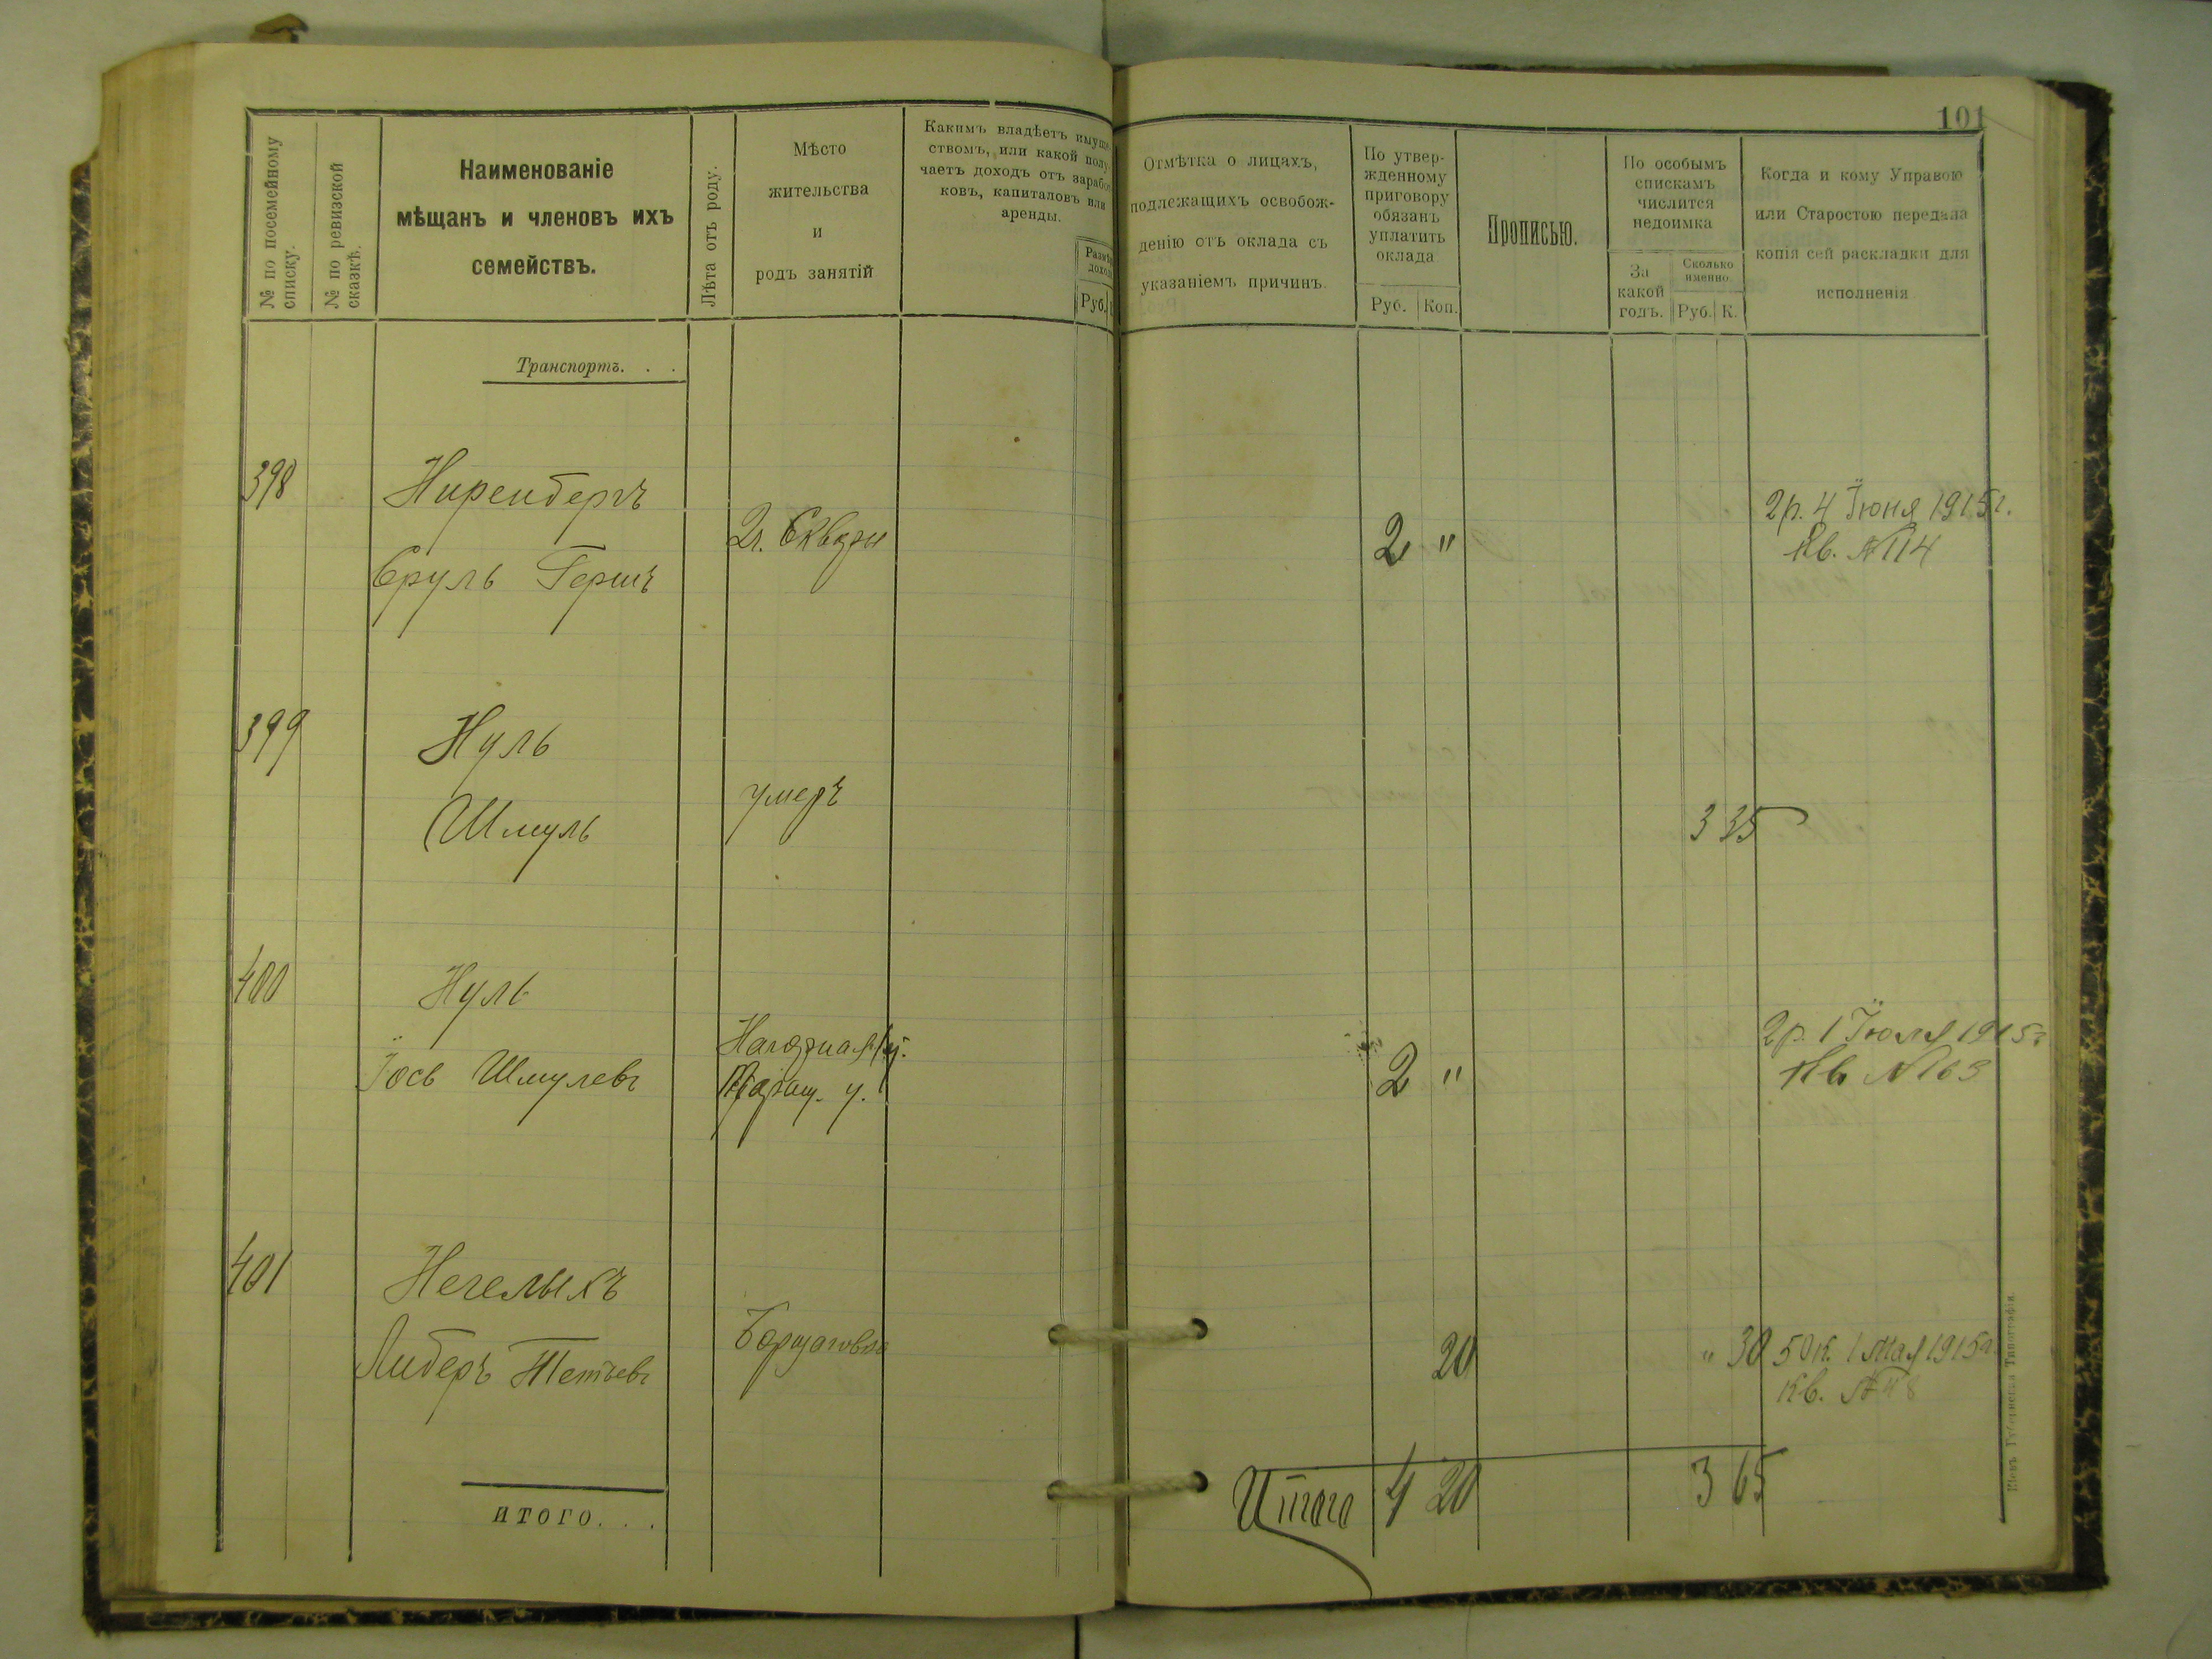 101
№ по посемейному списку.
№ по ревизской сказкѣ.
Наименованіе
мѣщанъ и членовъ ихъ
семействъ.
Лѣта отъ роду.
Мѣсто
жительства
и
родъ занятій
Какимъ владѣетъ имуще-
ствомъ, или какой полу-
чаетъ доходъ отъ заработ-
ковъ, капиталовъ или
аренды.
Размѣръ
дохода
Руб.
Отмѣтка о лицахъ,
подлежащихъ освобож-
денію отъ оклада съ
указаніемъ причинъ.
По утвер-
жденному
приговору
обязанъ
уплатить
оклада
Руб. Коп.
Прописью.
По особымъ
спискамъ
числится
недоимка
За
какой
годъ.
Сколько
именно.
Руб. К.
Когда и кому Управою
или Старостою передана
копія сей раскладки для
исполненія
Транспортъ. . .
398 Ниренбергъ
Сруль Гершъ
2 "
2р. 4 Іюня 1915г.
Кв. №114
399 Нуль
Шмуль
умеръ
3 35
400 Нуль
Іось Шмулевъ
2 "
2р. 1 Іюля 1915г
Кв №163
401
Либеръ
20
" 30
50к. 1 Мая 1915г.
Кв.
итого. . .
Итого 4 20 3 65
Кіевъ Губернская Типографія.